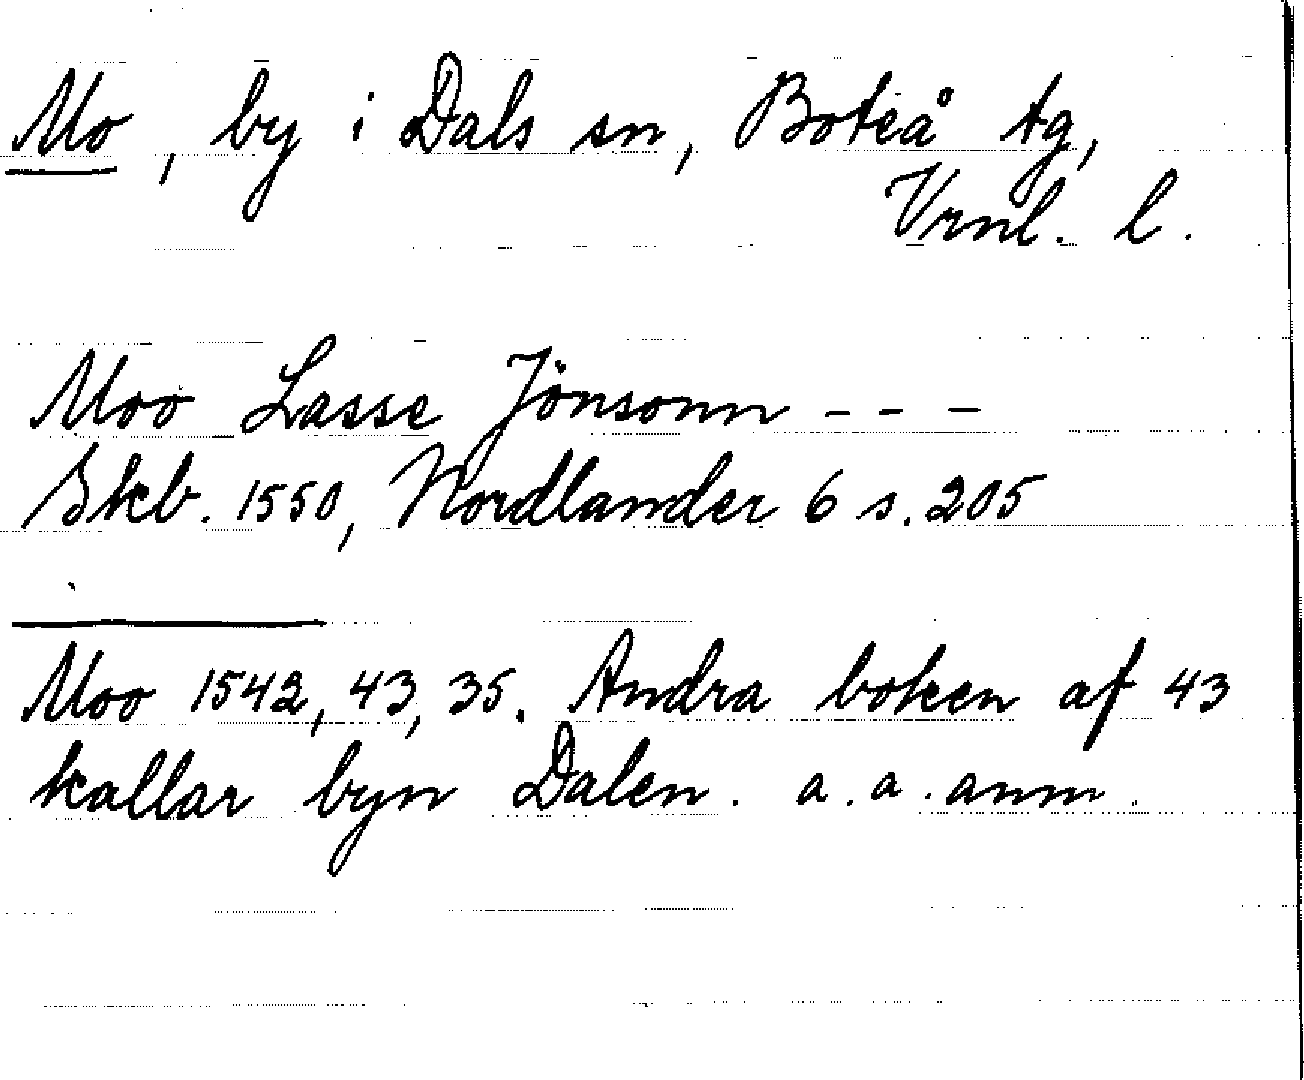 Mo, by i Dals sn, Boteå tg,
Vrnl. l.
Moo Lasse Jönsonn - - -
Skb. 1550, Nordlander 6 s. 205
Moo 1542, 43, 35. Andra boken af 43
kallar byn Dalen. a. a. anm.